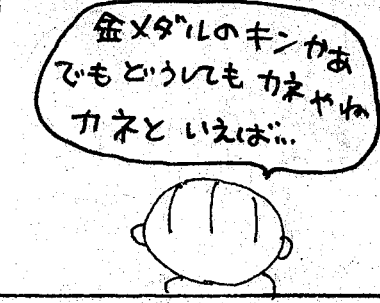 金メダルのキンかぁ
でもどうしてもカネやね
カネといえば…